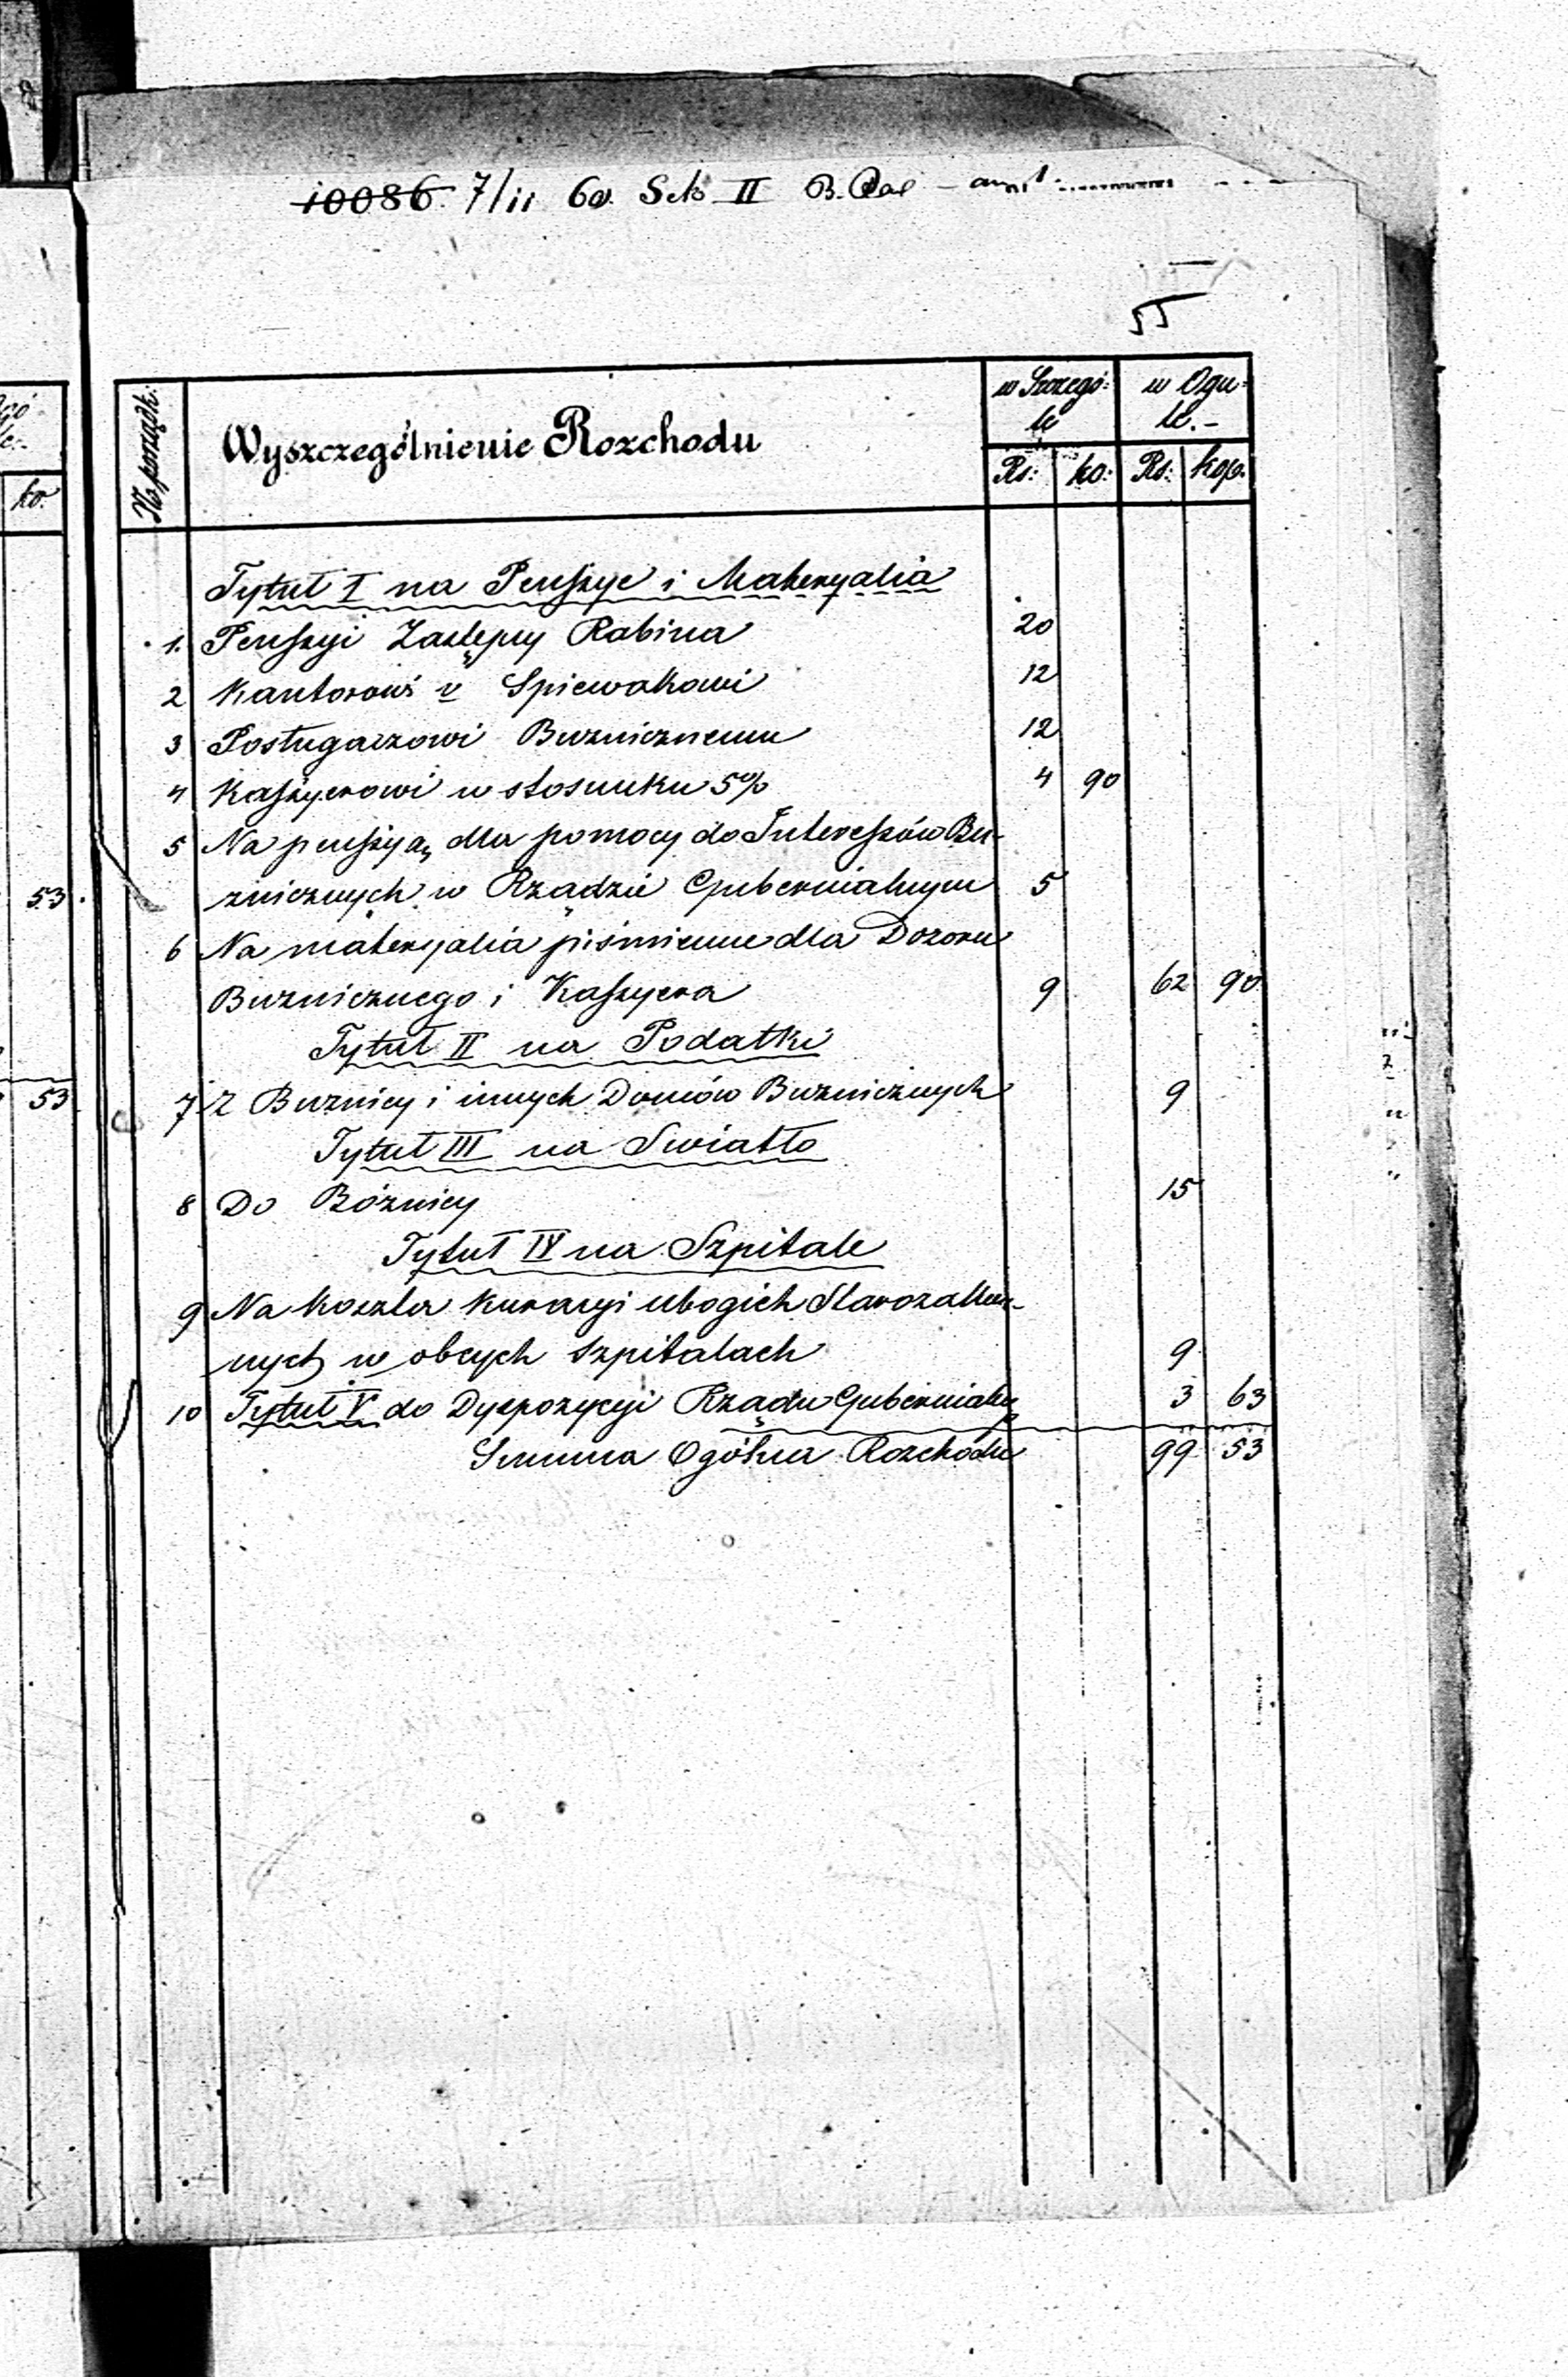 10086. 7/11 60. Sek II B.
55
No porządk:
Wyszczególnienie Rozchodu
w Szczegó:
le
w Ogu:
le.-
Rs: ko: Rs: kop.
Tytuł I na Penszye i Materyalia
1. Penszyi Zastępcy Rabina 20
2 Kantorowi v Spiewakowi 12
3 Posługaczowi Buznicznemu 12
4 Kaszyerowi w stosunku 5% 4 90
5 Na penszyą dla pomocy do Intereszów Bu-
znicznych w Rządzie Gubernialnym 5
6 Na materyalia piśmienne dla Dozoru
Buznicznego i Kaszyera 9 62 90
Tytuł II na Podatki
7. Z Buznicy i innych Domów Buznicznych 9
Tytuł III na Swiatło
8 Do Bóznicy 15
Tytuł IV na Szpitale
9 Na koszta kuracyi ubogich Starozakon-
nych w obcych szpitalach 9
10 Tytuł V do Dyspozycyi Rządu Gubernialn 3 63
Summa Ogólna Rozchodu 99 53
ko.
53.
53